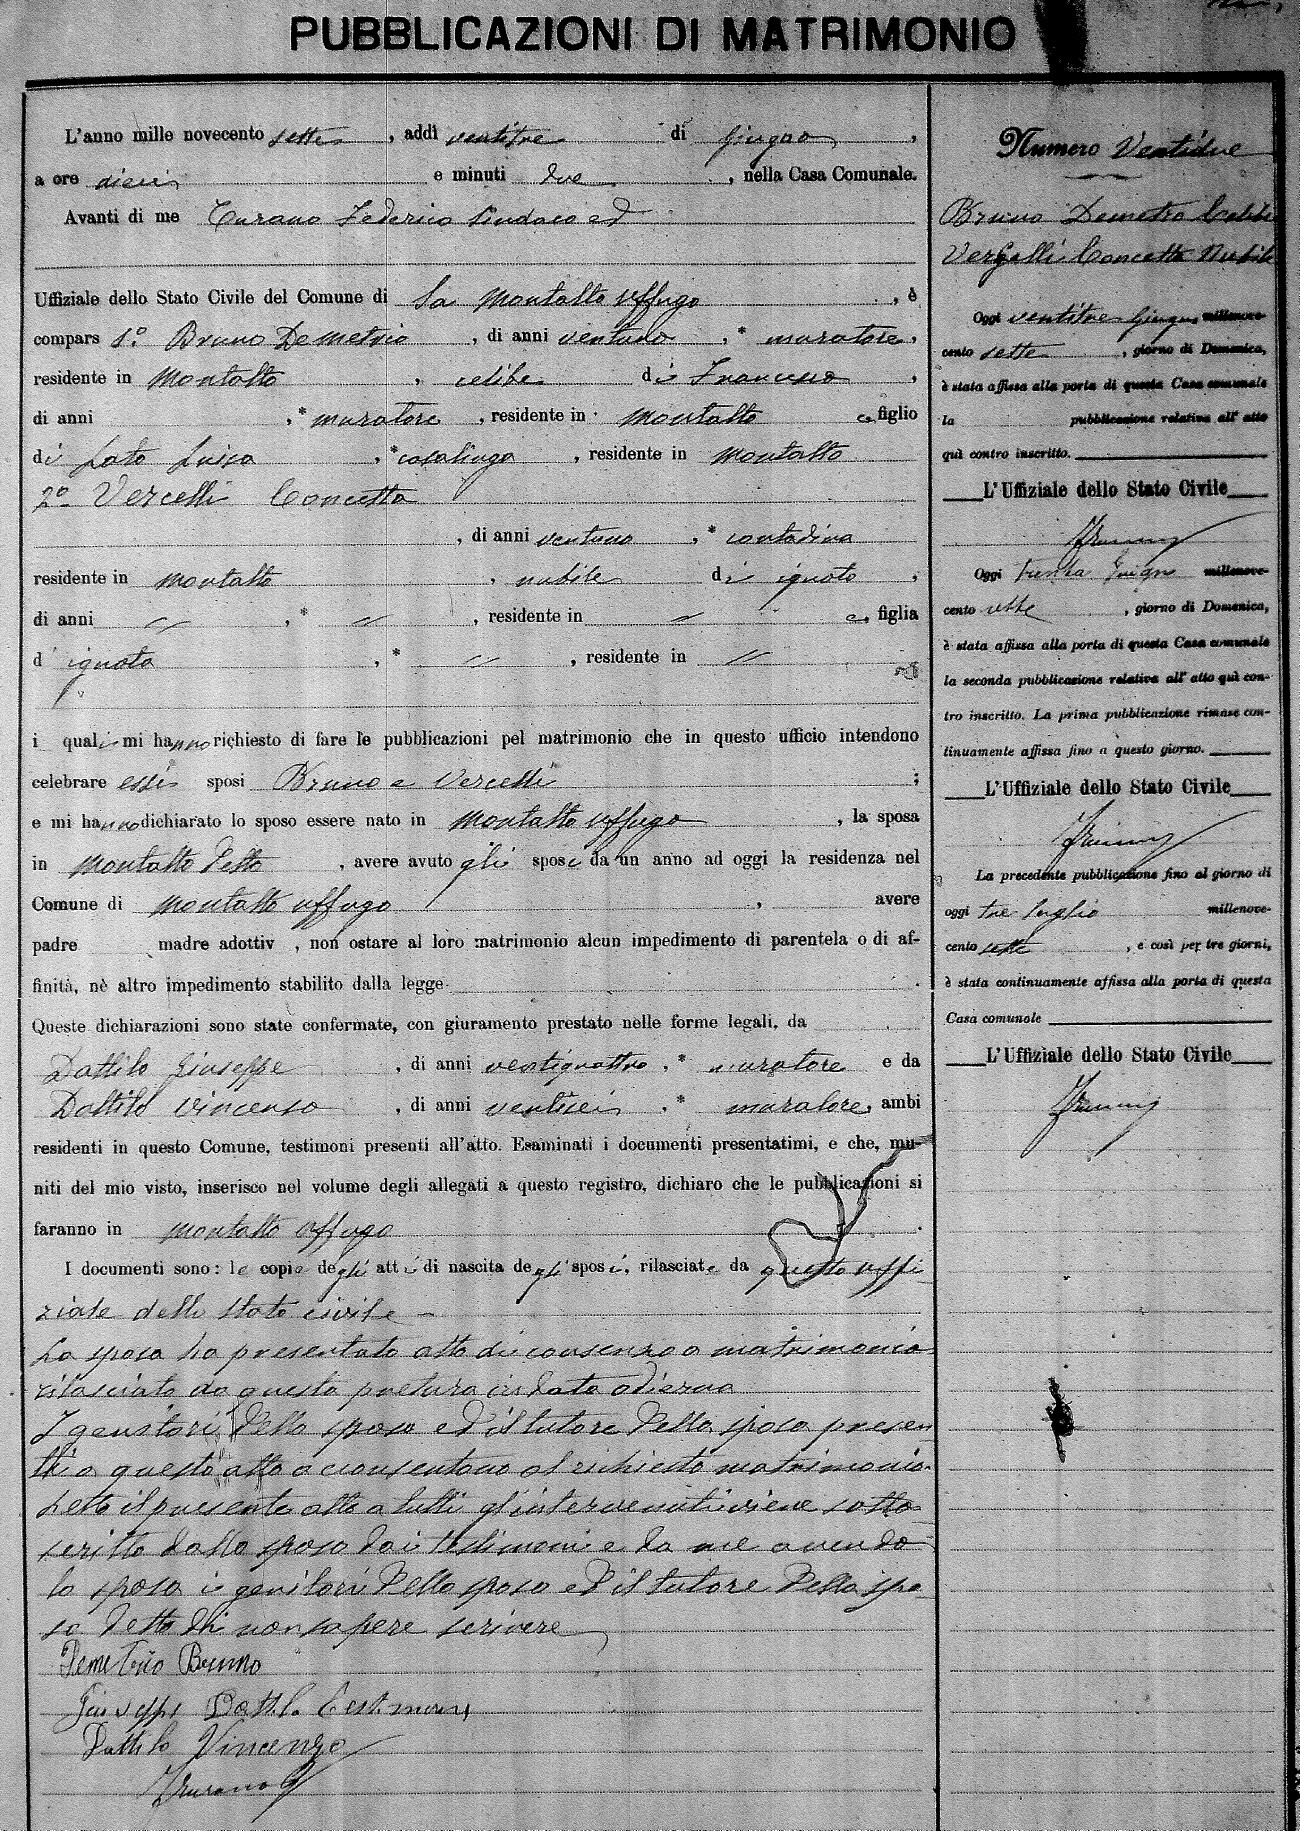 PUBBLICAZIONI DI MATRIMONIO
L'anno mille novecento sette, addì ventitre di Giugno,
a ore dieci e minuti due, nella Casa Comunale.
Avanti di me Turano Federico Sindaco ed
Uffiziale dello Stato Civile del Comune di la Montalto Uffugo, è
compars 1º Bruno Demetrio, di anni ventudo, * muratore,
residente in Montalto, celibe di Francesco,
di anni , * muratore, residente in Montalto e, figlio
di Lato Luisa, * casalinga, residente in Montalto
2º Vercelli Concetta
, di anni ventuno, * contadina
residente in Montalto, nubile di ignoto,
di anni " , * " , residente in " e, figlia
d' ignota , * " , residente in "
i quali mi hanno richiesto di fare le pubblicazioni pel matrimonio che in questo ufficio intendono
celebrare essi sposi Bruno e Vercelli ;
e mi hanno dichiarato lo sposo essere nato in Montalto Uffugo, la sposa
in Montalto detto, avere avuto gli sposi da un anno ad oggi la residenza nel
Comune di Montalto Uffugo, avere
padre madre adottiv , non ostare al loro matrimonio alcun impedimento di parentela o di af-
finità, nè altro impedimento stabilito dalla legge.
Queste dichiarazioni sono state confermate, con giuramento prestato nelle forme legali, da
Dattilo Giuseppe, di anni ventiquattro, * muratore e da
Dattilo Vincenzo, di anni ventisei, * muratore, ambi
residenti in questo Comune, testimoni presenti all'atto. Esaminati i documenti presentatimi, e che, mu-
niti del mio visto, inserisco nel volume degli allegati a questo registro, dichiaro che le pubblicazioni si
faranno in Montalto Uffugo.
I documenti sono: le copie degli atti di nascita degli sposi, rilasciate da questo uffi
ziale dello stato civile
La sposa ha presentato atto di consenso a matrimonio
rilasciato da questa pretura in data odierna
I genitori dello sposo ed il tutore della sposa presen
ti a questo atto acconsentono al richiesto matrimonio.
Letto il presente atto a tutti gl'intervenuti viene sotto
scritto dallo sposo dai testimoni e da me avendo
la sposa i genitori dello sposo ed il tutore della spo
sa detto di non sapere scrivere
Demetrio Bruno
Giuseppe Dattilo testimone
Dattilo Vincenzo
FTurano
Numero Ventidue
Bruno Demetrio Celibe
Vergelli Concetta Nubile
Oggi ventitre Giugno millenove-
cento sette, giorno di Domenica,
è stata affissa alla porta di questa Casa comunale
la pubblicazione relativa all'atto
quì contro inscritto.
L'Uffiziale dello Stato Civile
Oggi trenta Giugno millenove-
cento sette, giorno di Domenica,
è stata affissa alla porta di questa Casa comunale
la seconda pubblicazione relativa all'atto quì con-
tro inscritto. La prima pubblicazione rimase con-
tinuamente affissa fino a questo giorno.
L'Uffiziale dello Stato Civile
La precedente pubblicazione fino al giorno di
oggi tre luglio millenove-
cento sette, e così per tre giorni,
è stata continuamente affissa alla porta di questa
Casa comunale
L'Uffiziale dello Stato Civile